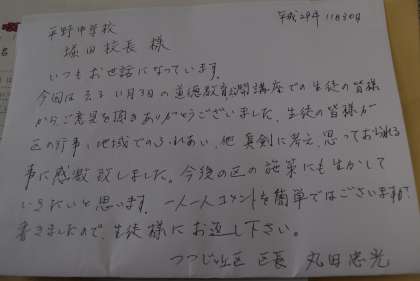 平成29年 11月30日
平野中学校
堀田校長 様
いつもお世話になっています。
今回は去る11月3日の道徳教育公開講座での生徒の皆様
からご意見を頂きありがとうございました。生徒の皆様が
区の行事、地域でのふれあい、他 真剣に考え、思っておられる
事に感激致しました。今後の区の施策にも生かして
いきたいと思います。一人一人コメントを簡単ではございますが
書きましたので、生徒様にお返し下さい。
つつじヶ丘区 区長 丸田忠光